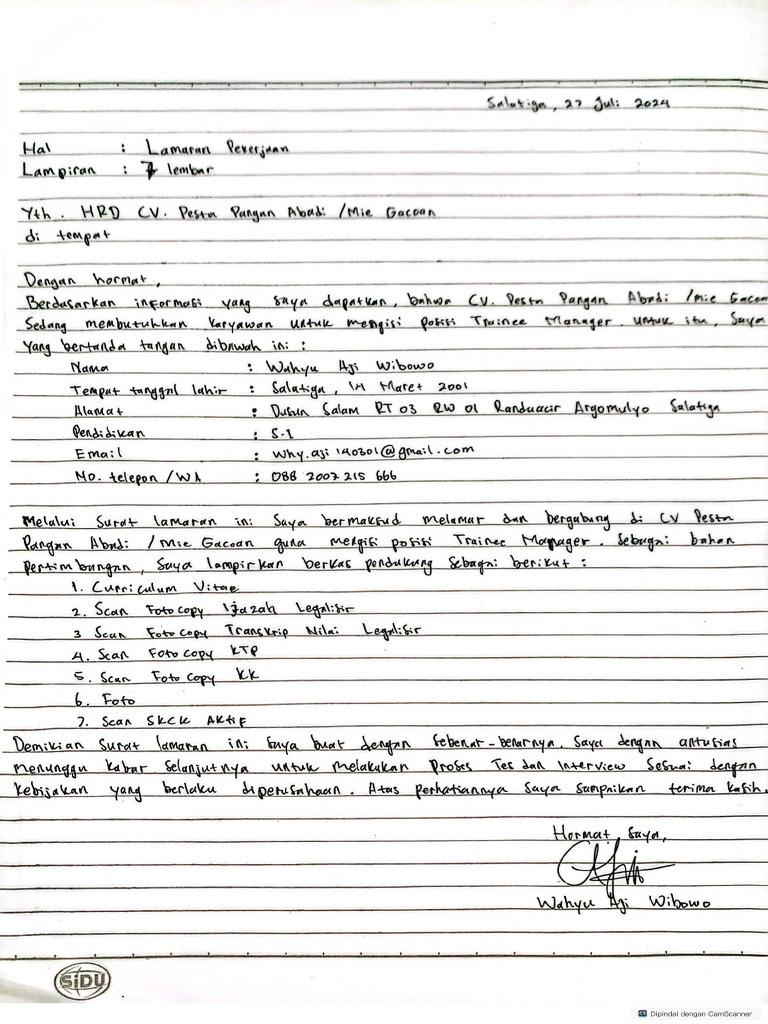 Salatiga, 27 Juli 2024
Hal : Lamaran Pekerjaan
Lampiran : 7 lembar
Yth. HRD CV. Pesta Pangan Abadi /Mie Gacoan
di tempat
Dengan hormat,
Berdasarkan informasi yang saya dapatkan, bahwa CV. Pesta Pangan Abadi /Mie Gacoan
Sedang membutuhkan karyawan untuk mengisi posisi Trainee Manager. untuk itu, Saya
yang bertanda tangan dibawah ini :
Nama : Wahyu Aji Wibowo
Tempat tanggal lahir : Salatiga, 14 Maret 2001
Alamat : Dusun Salam RT 03 RW 01 Randuacir Argomulyo Salatiga
Pendidikan : S-1
Email : why.aji140301@gmail.com
No. telepon /WA : 088 2007 215 666
Melalui Surat lamaran ini Saya bermaksud melamar dan bergabung di CV Pesta
Pangan Abadi /Mie Gacoan guna mengisi posisi Trainee Manager. Sebagai bahan
pertimbangan, Saya lampirkan berkas pendukung sebagai berikut :
1. Curriculum Vitae
2. Scan Fotocopy Ijazah Legalisir
3 Scan Fotocopy Transkrip Nilai Legalisir
4. Scan Fotocopy KTP
5. Scan Fotocopy KK
6. Foto
7. Scan SKCK AKtif
Demikian Surat lamaran ini saya buat dengan sebenar-benarnya. Saya dengan antusias
menunggu kabar selanjutnya untuk melakukan Proses Tes dan Interview Sesuai dengan
Kebijakan yang berlaku diperusahaan. Atas perhatiannya Saya sampaikan terima kasih.
Hormat Saya,
Wahyu Aji Wibowo
SiDU
Dipindai dengan CamScanner